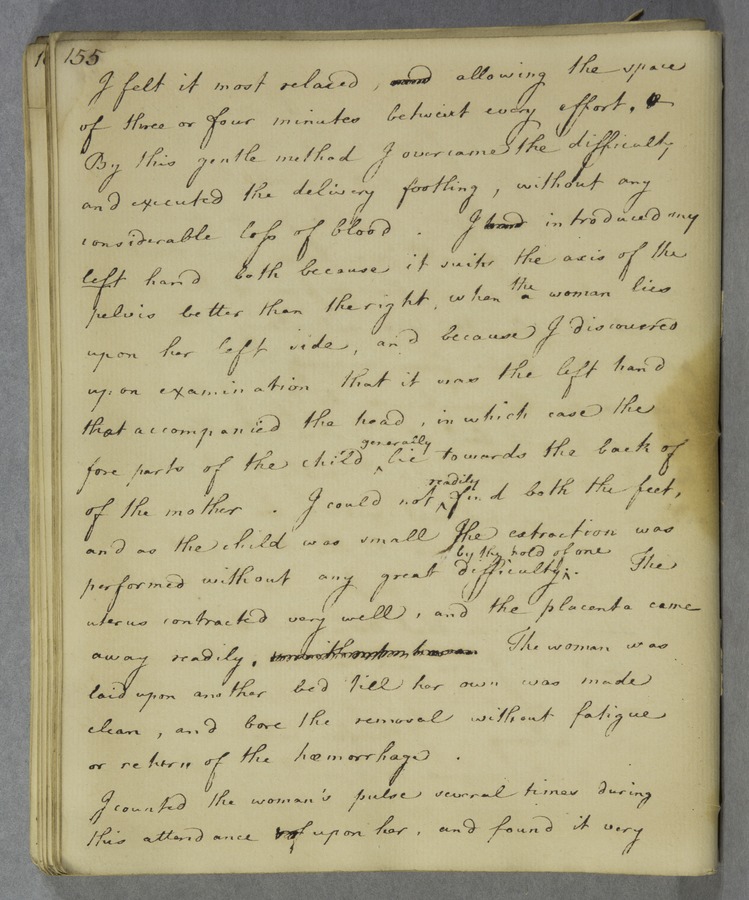 155
I felt it most relaxed, and allowing the space
of three or four minutes betwixt every effort.
By this gentle method I overcame the difficulty
and executed the delivery footling, without any
considerable loss of blood. I had introduced my
left hand both because it suits the axis of the
pelvis better than the right, when the a woman lies
upon her left side, and because I discovered
upon examination that it was the left hand
that accompanied the head, in which case the
fore parts of the child generally lie towards the back of
of the mother. I could not readily find both the feet,
and as the child was small the extraction was
performed without any great difficulty by the hold of one. The
uterus contracted very well, and the placenta came
away readily. The woman was
laid upon another bed till her own was made
clean, and bore the removal without fatigue
or return of the hæmorrhage.
I counted the woman's pulse several times during
this attendance upon her, and found it very